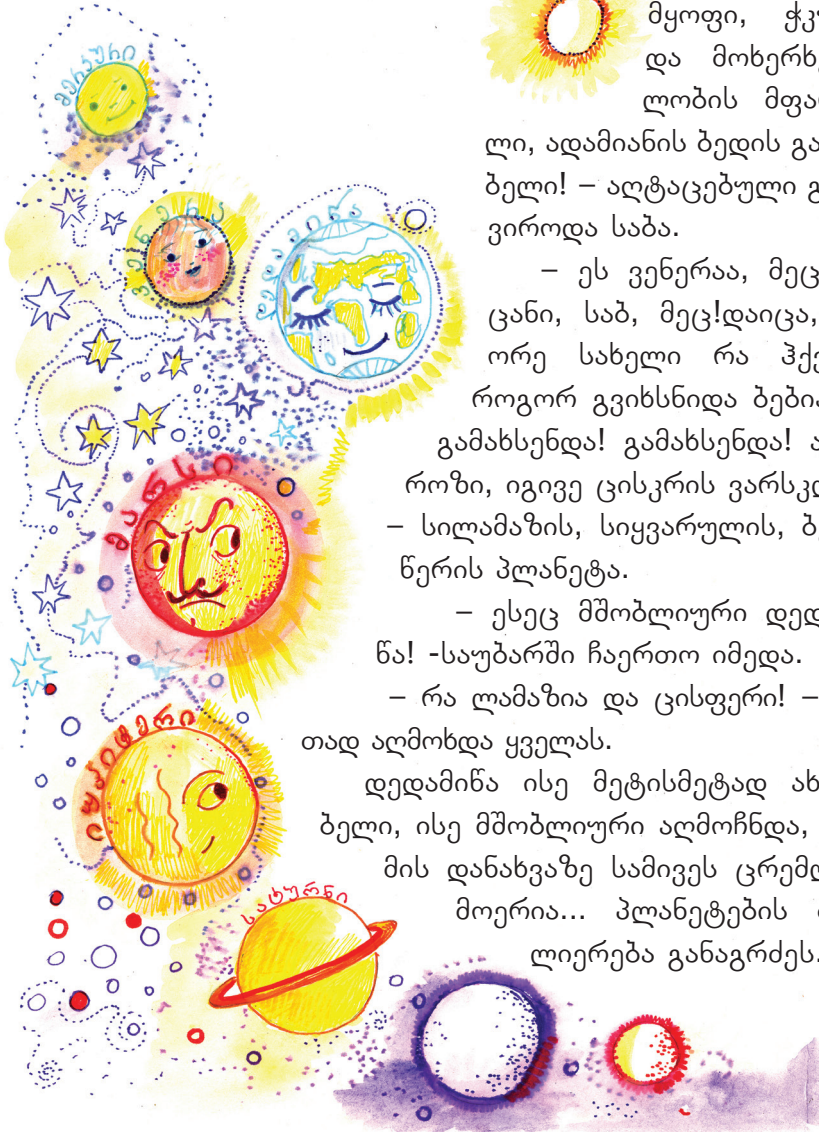 მერკური
ვენერა
დედამიწა
მარსი
იუპიტერი
სატურნი
მყოფი, ჭკ
და მოხერხ
ლობის მფა
ლი, ადამიანის ბედის გა
ბელი! – აღტაცებული გ
ვიროდა საბა.
– ეს ვენერაა, მეც
ცანი, საბ, მეც!დაიცა,
ორე სახელი რა ჰქ
როგორ გვიხსნიდა ბები
გამახსენდა! გამახსენდა! ა
როზი, იგივე ცისკრის ვარსკ
– სილამაზის, სიყვარულის, ბ
წერის პლანეტა.
– ესეც მშობლიური დედ
წა! -საუბარში ჩაერთო იმედა.
– რა ლამაზია და ცისფერი! –
თად აღმოხდა ყველას.
დედამიწა ისე მეტისმეტად ახ
ბელი, ისე მშობლიური აღმოჩნდა,
მის დანახვაზე სამივეს ცრემ
მოერია... პლანეტების
ლიერება განაგრძეს.